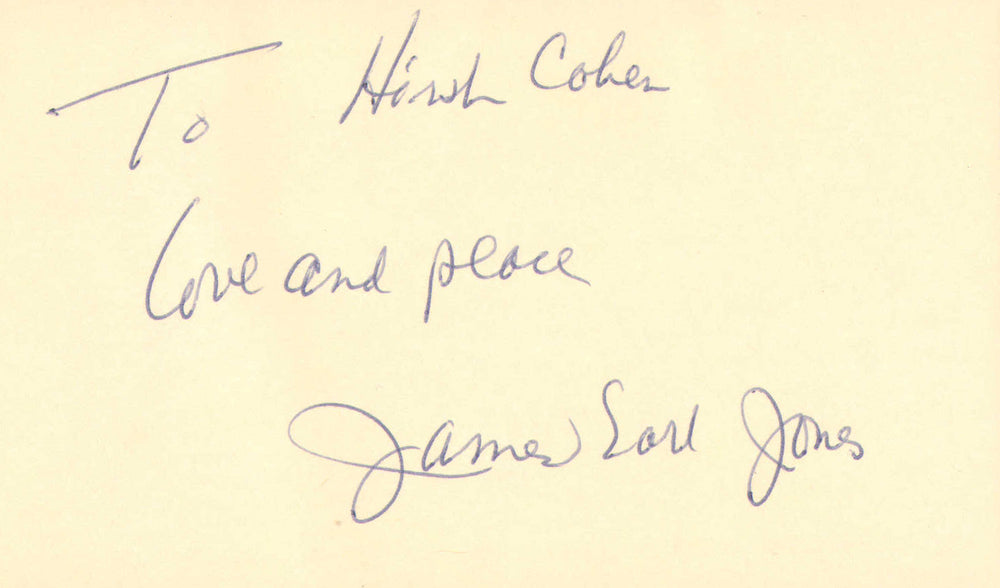 To Hirsh Cohen
Love and peace
James Earl Jones